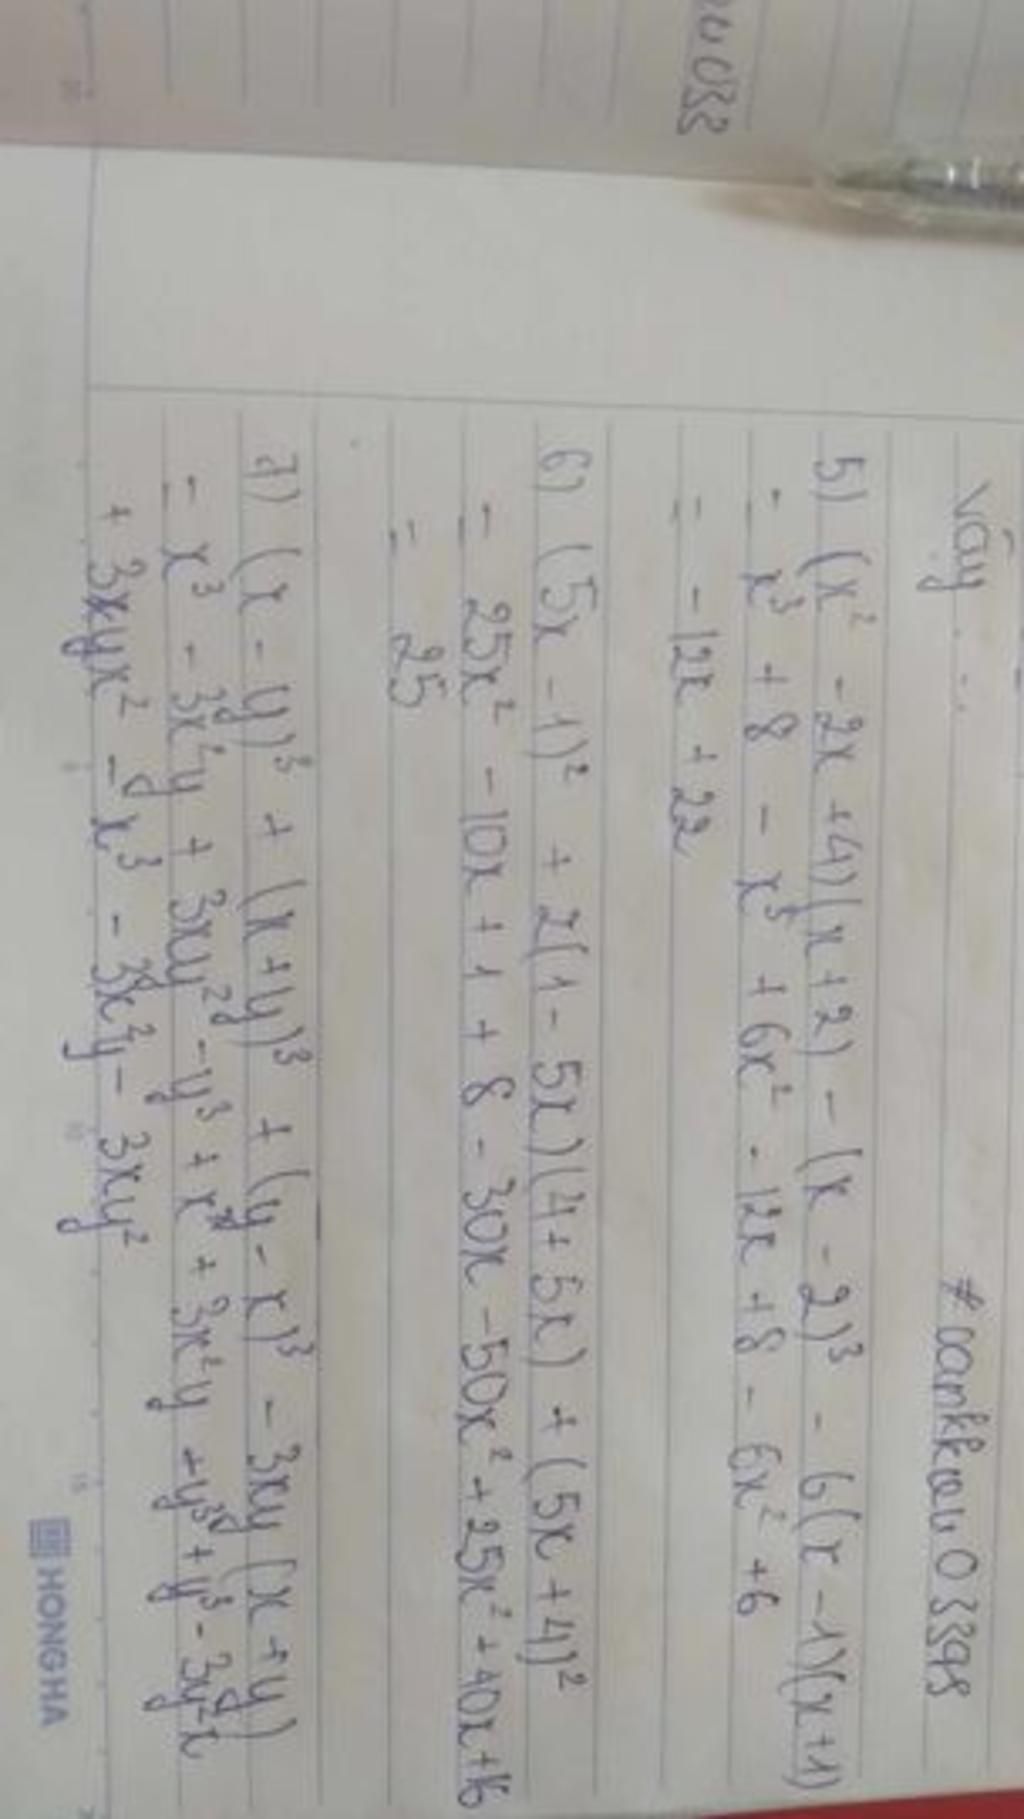 Vậy ...
#oankkau03398
5) (x² - 2x + 4)(x + 2) - (x - 2)³ - 6(x - 1)(x + 1)
= x³ + 8 - x³ + 6x² - 12x + 8 - 6x² + 6
= - 12x + 22
6) (5x - 1)² + 2(1 - 5x)(4 + 5x) + (5x + 4)²
= 25x² - 10x + 1 + 8 - 30x - 50x² + 25x² + 40x + 16
= 25
7) (x - y)³ + (x + y)³ + (y - x)³ - 3xy (x + y)
= x³ - 3x²y + 3xy² - y³ + x³ + 3x²y + 3xy² + y³ + y³ - 3y²x
+ 3yx² - x³ - 3x²y - 3xy²
HONG HA